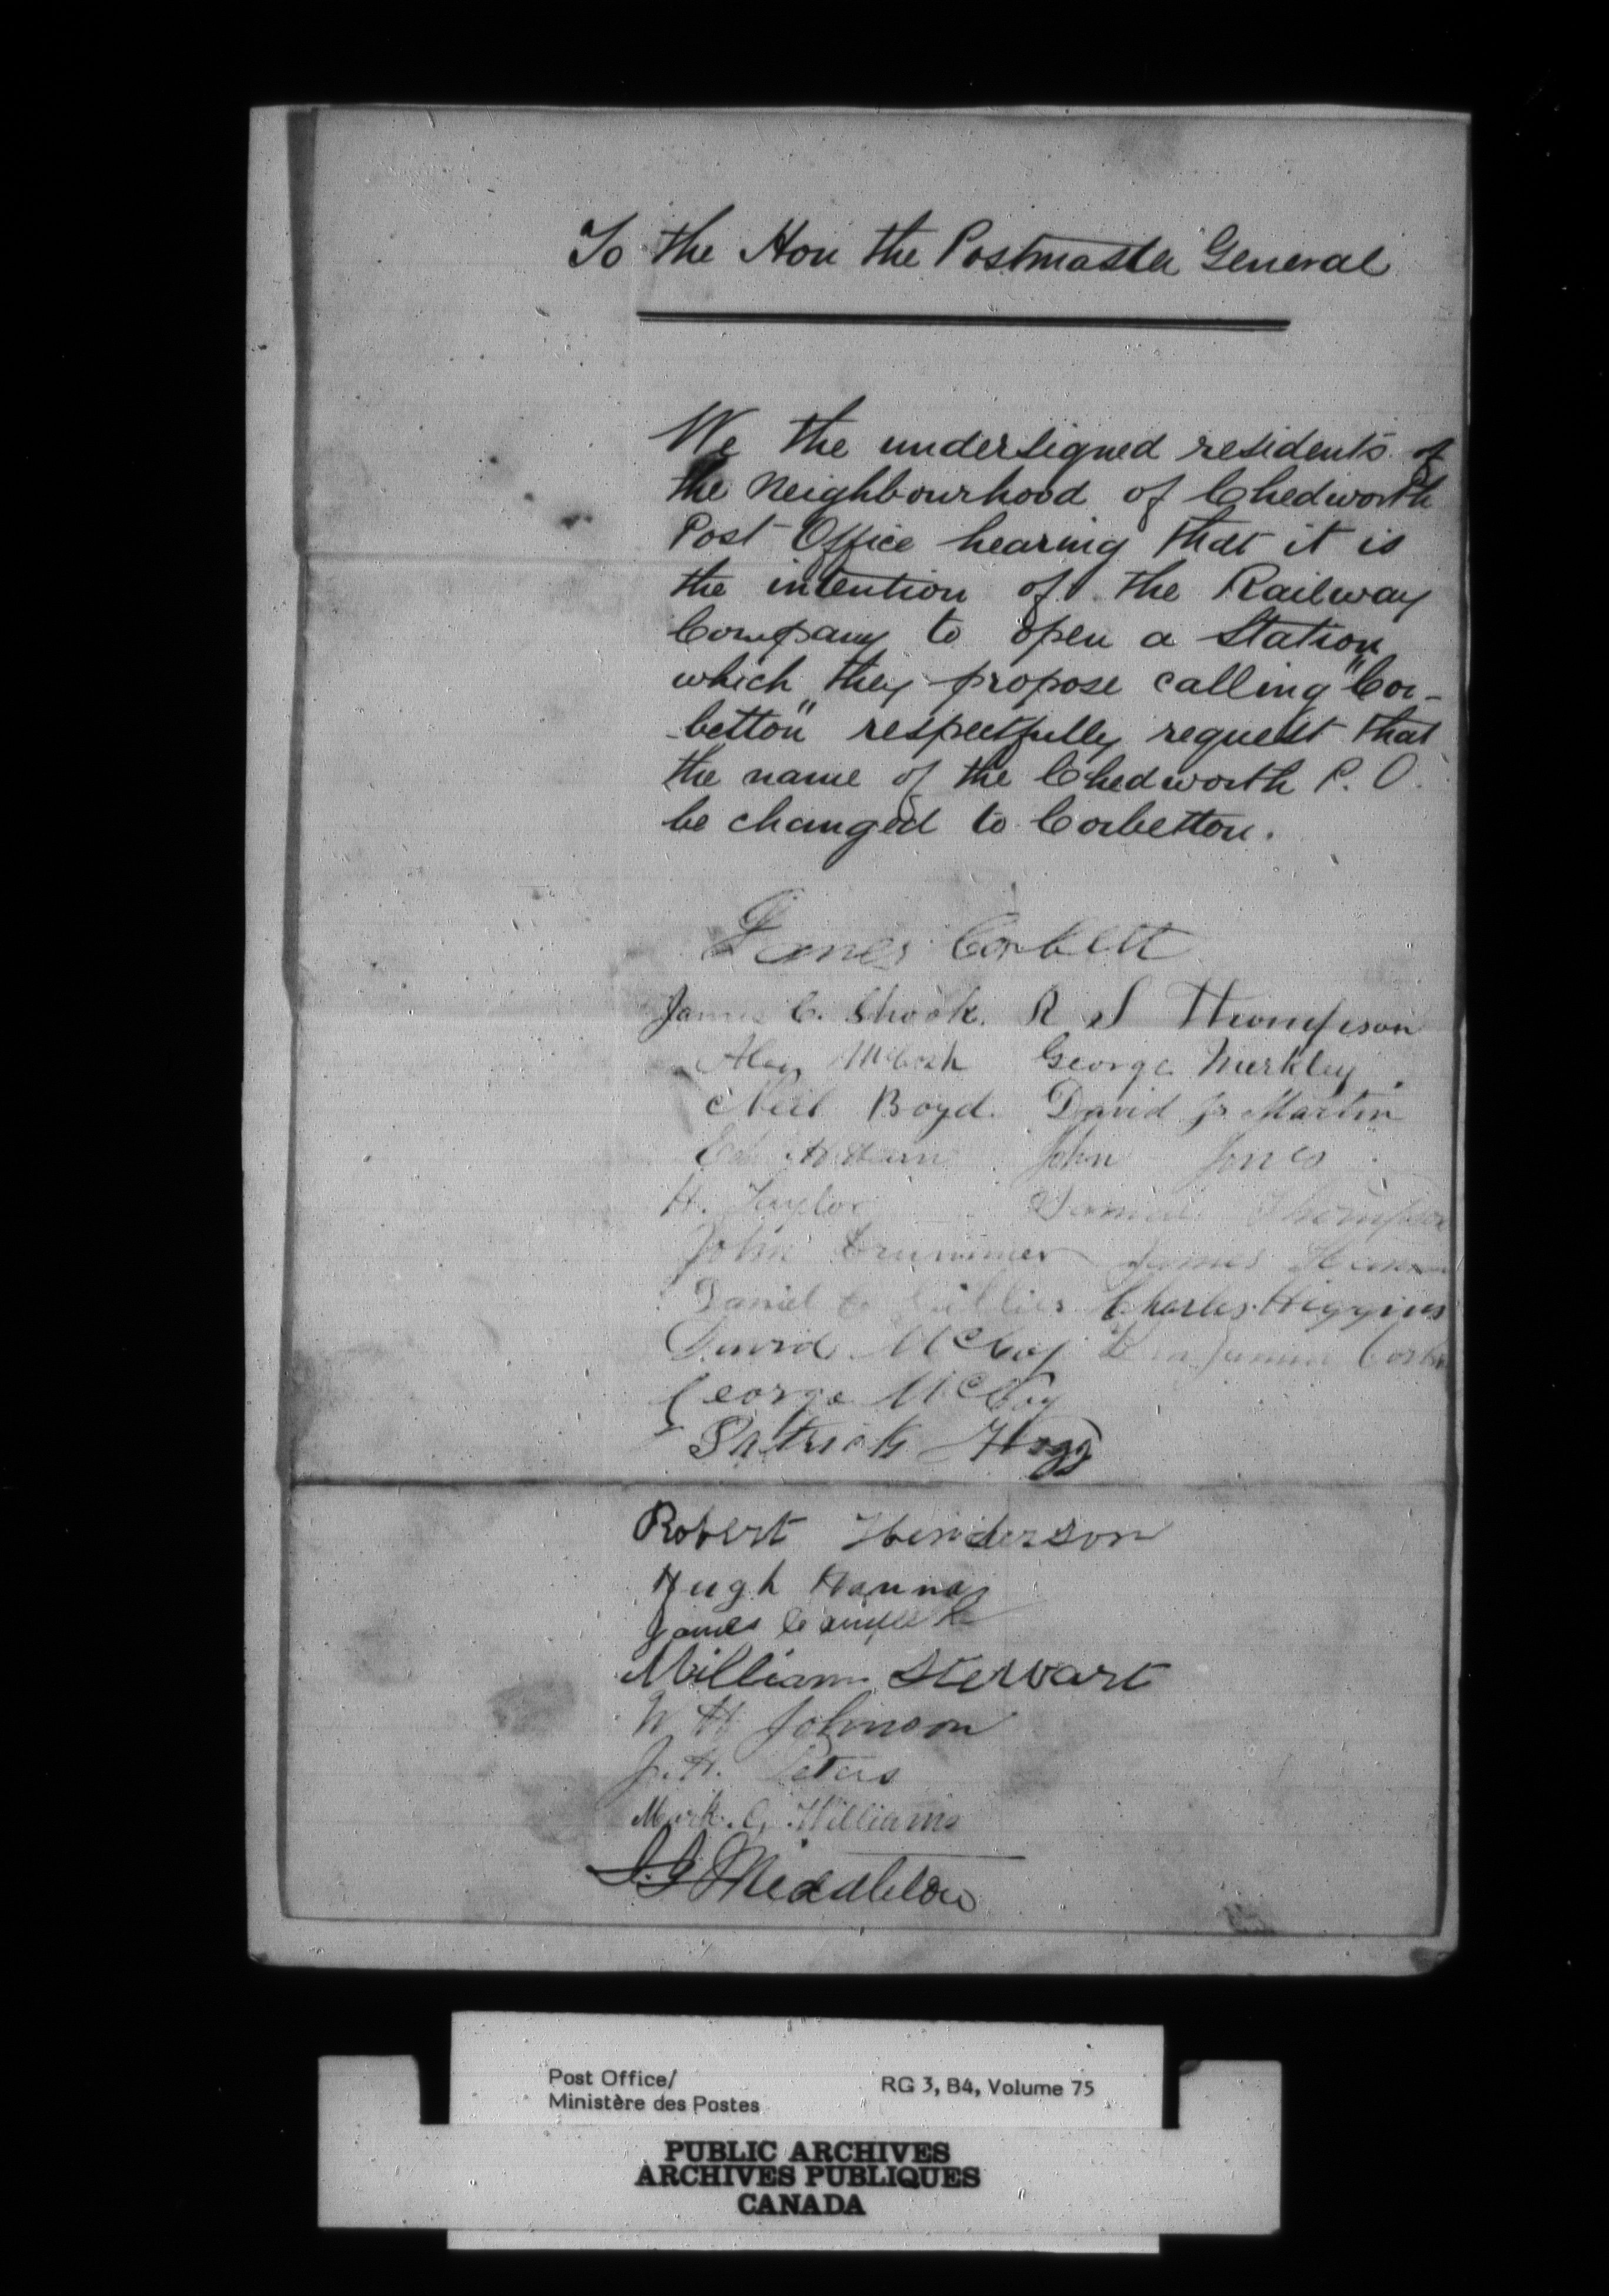 To the Hon the Postmaster General
We the undersigned residents of
the neighbourhood of Chedworth
Post Office hearing that it is
the intention of the Railway
Company to open a Station
which they propose calling "Cor-
-betton" respectfully request that
the name of the Chedworth P. O.
be changed to Corbetton.
James Corbett
James C. Shook. R S Thompson
George Merkley
Neil Boyd. David Martin
John Jones
H. Taylor Thompson
John James
Daniel Charles Higgins
David McCoy Benjamin
George McCoy
Patrick Hogg
Robert Henderson
Hugh Hannas
James
William Stewart
W H Johnson
J. H. Peters
Mark. G. Williams
Middleton
Post Office/ RG 3, B4, Volume 75
Ministère des Postes
PUBLIC ARCHIVES
ARCHIVES PUBLIQUES
CANADA